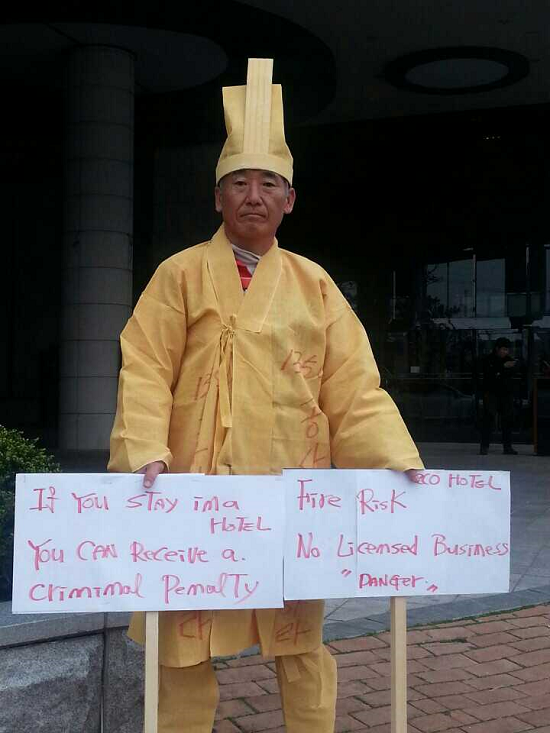 If You STAY ima
HOTEL
You CAN Receive a.
criminal Penalty
CO HOTEL
Fire Risk
No Licensed Business
"DANGER."